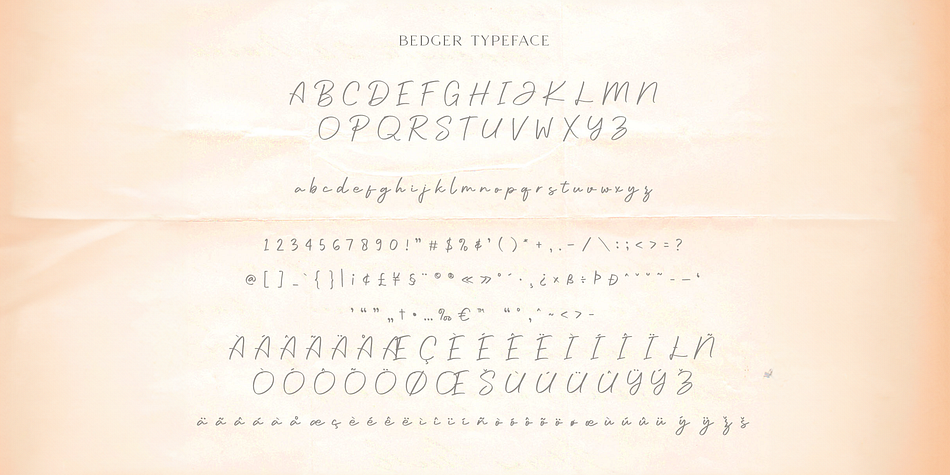 BEDGER TYPEFACE
A B C D E F G H I J K L M N
O P Q R S T U V W X Y Z
a b c d e f g h i j k l m n o p q r s t u v w x y z
1 2 3 4 5 6 7 8 9 0 ! " # $ % & ' ( ) * + , . - / \ : ; < > = ?
@ [ ] _ ` { } | ¡ ¢ £ ¥ § ¨ © ® « » ° ´ · ¸ ¿ × ß ÷ Þ Ð ˆ ˇ ˘ ˜ – — ‘
’ “ ” „ † • … ‰ € ™
Æ Ç È É Ê Ë Ì Í Î Ï Ł Ñ
Ò Ó Ô Õ Ö Ø Œ Š Ù Ú Û Ü Ÿ Ý Ž
æ ç è é ê ë ì í î ï ñ ò ó ô õ ö ø œ ù ú û ü ý ÿ ž š